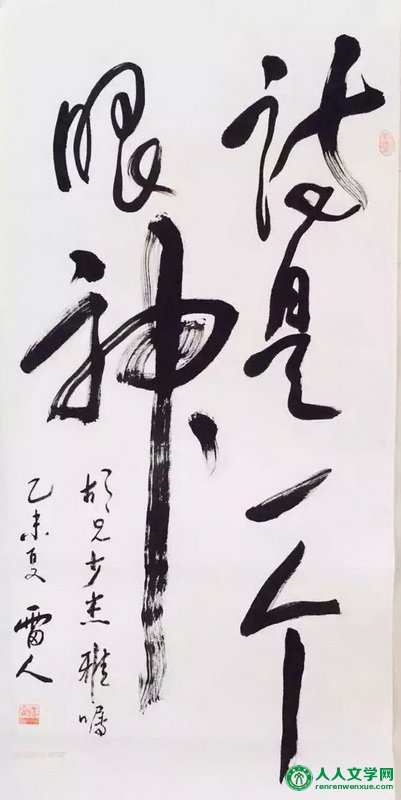 诗是一个
眼神
胡兄少杰雅嘱
乙未夏 雷人
人人文学网
renrenwenxue.com